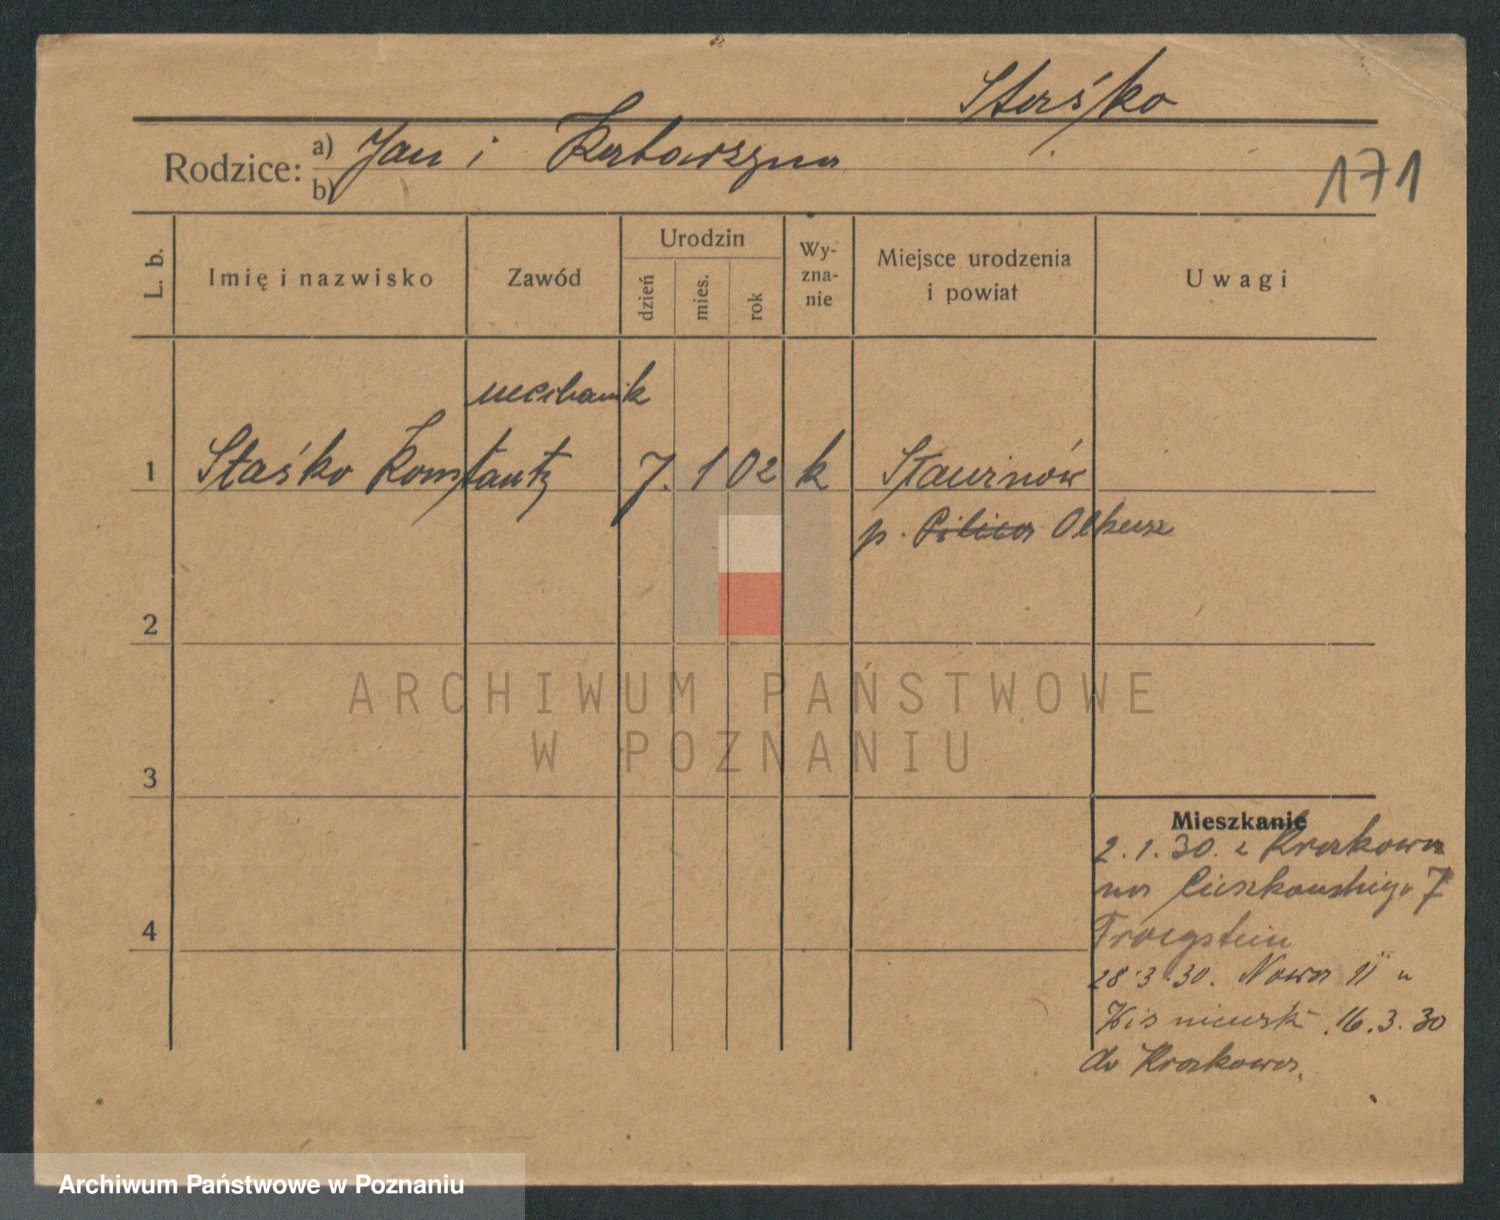 Staśko
Rodzice: a) Jan i Katarzyna
b)
171
L. b.
Imię i nazwisko
Zawód
Urodzin
dzień
mies.
rok
Wy-
zna-
nie
Miejsce urodzenia
i powiat
Uwagi
mechanik
1 Staśko Konstanty 7. 1 02 k Sławinów
p. Pilica Olkusz
2
ARCHIWUM PAŃSTWOWE
W POZNANIU
3
Mieszkanie
2.1.30. z Krakowa
na Cieszkowskiego 7
4
28.3.30. Nowa 11 u
16.3.30
do Krakowa.
Archiwum Państwowe w Poznaniu